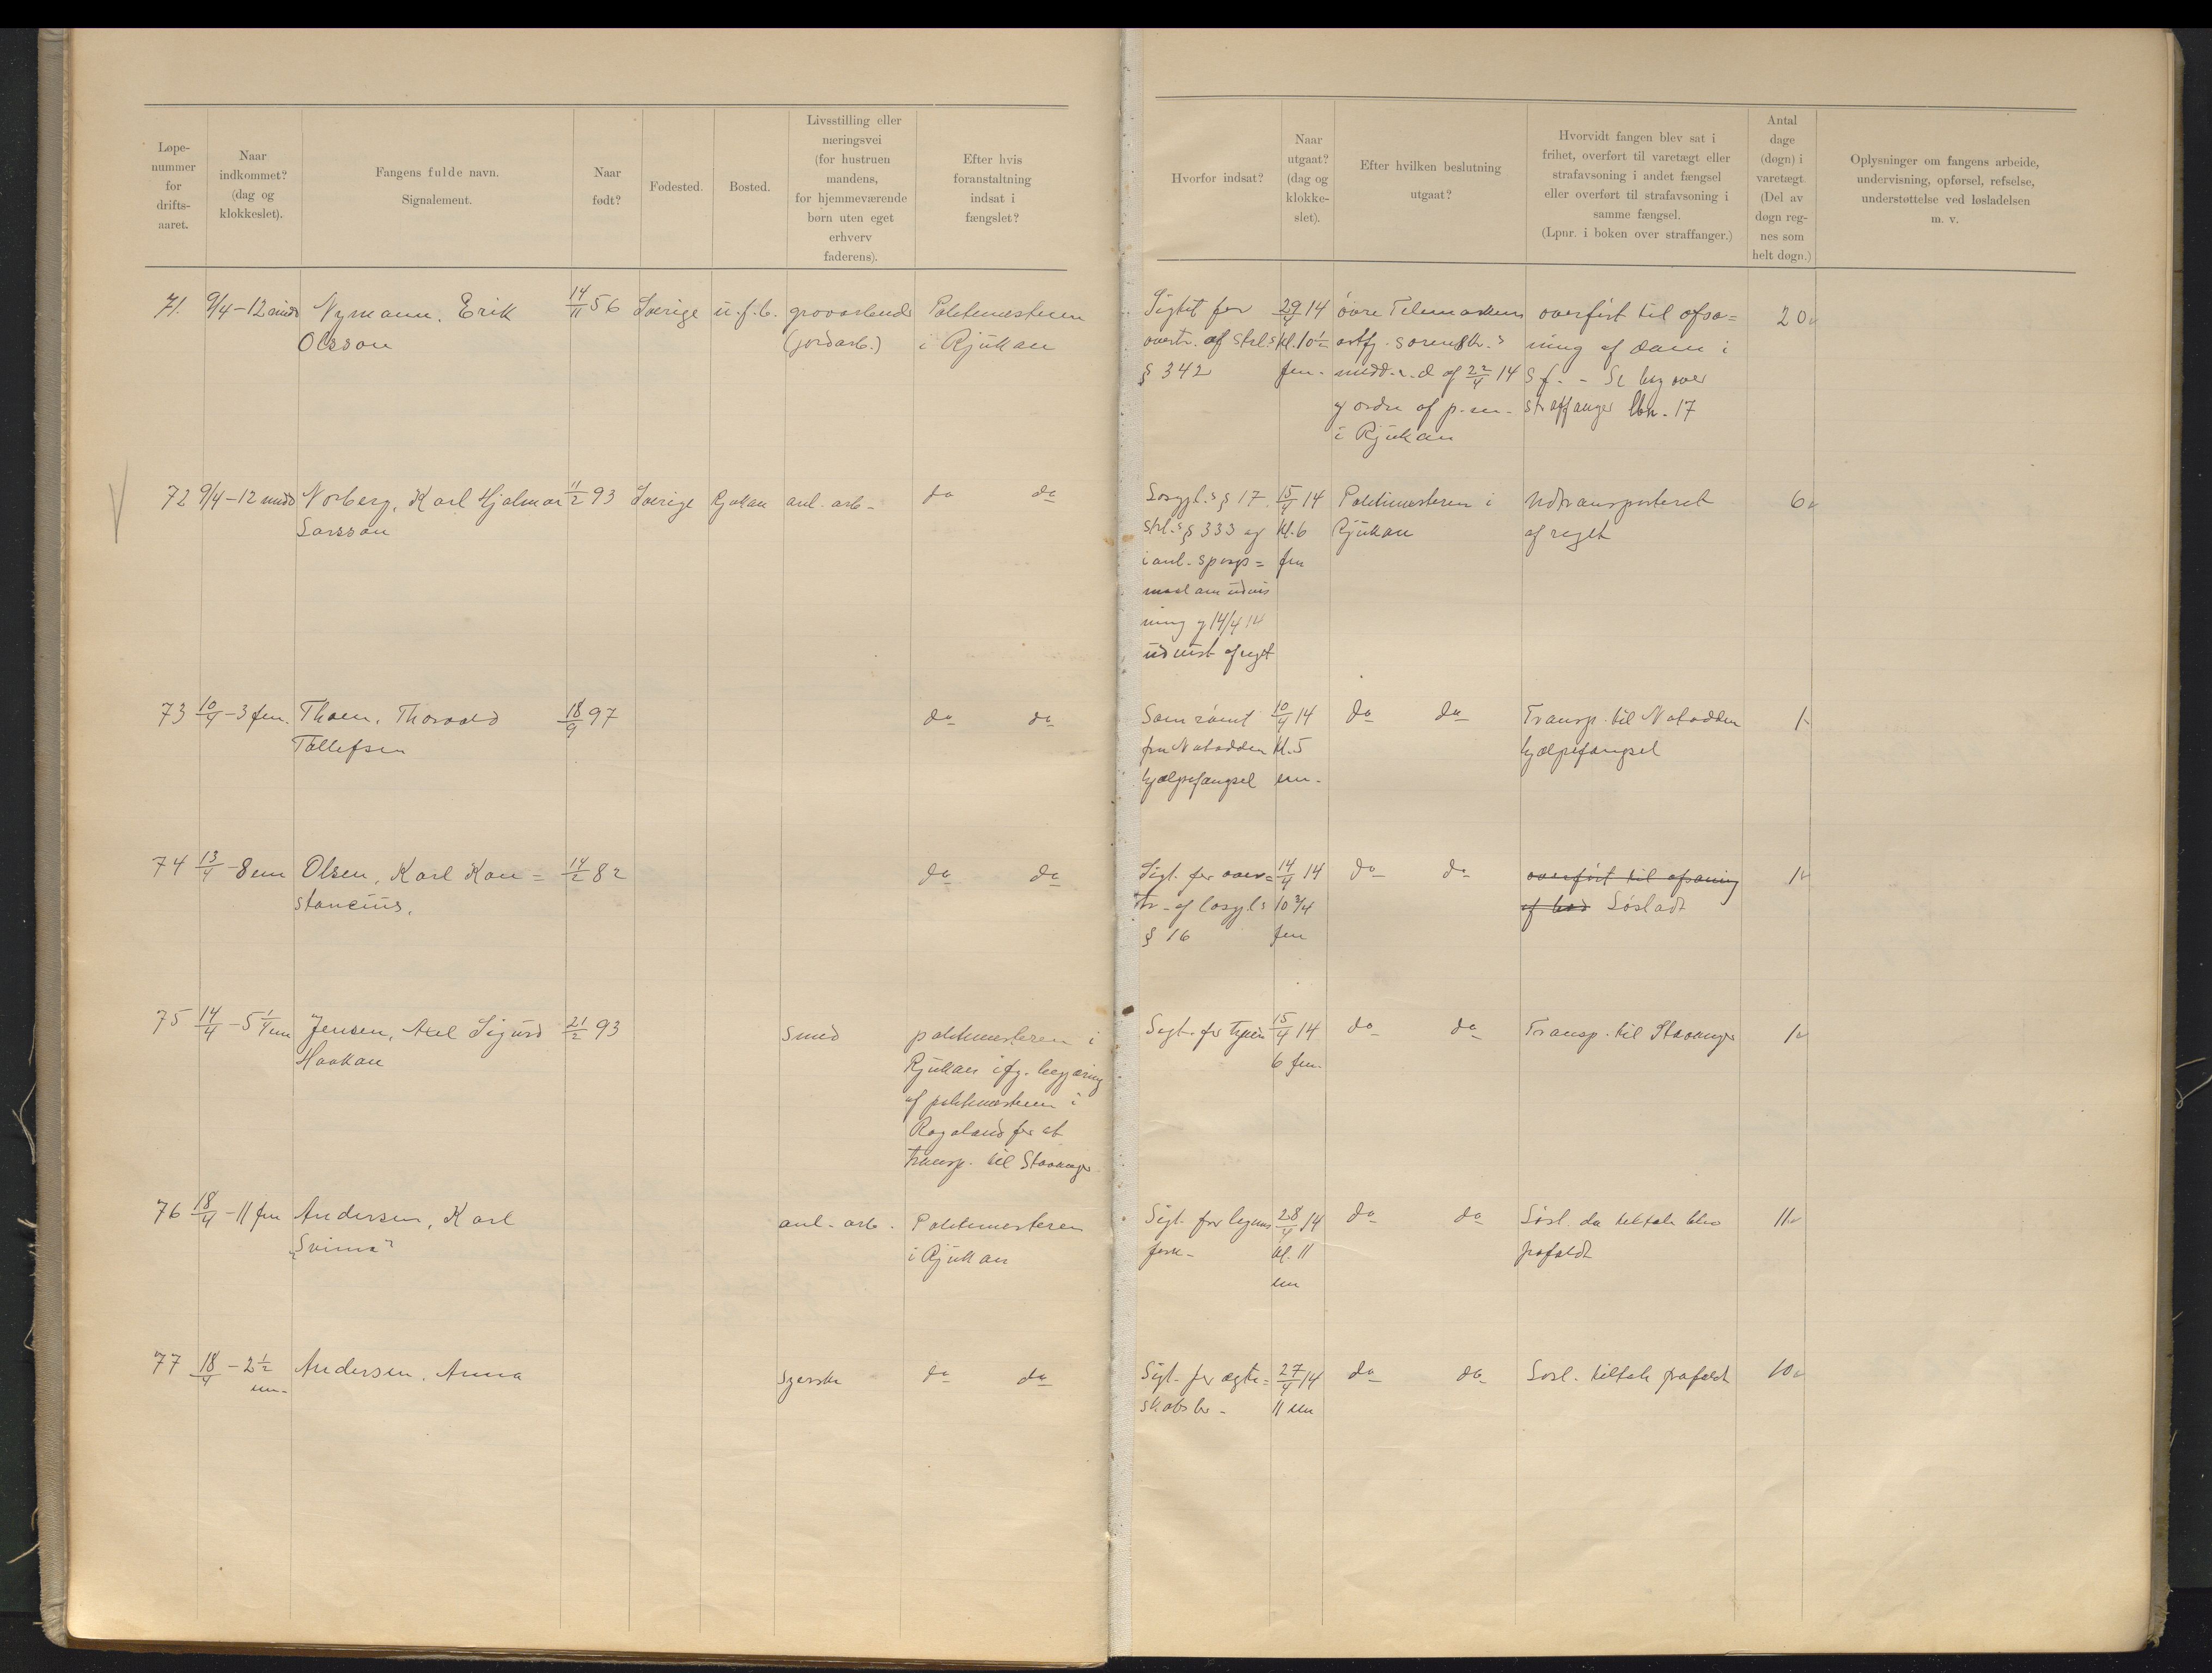 Løpe-
nummer
for
drifts-
aaret.
Naar
indkommet?
(dag og
klokkeslet).
Fangens fulde navn.
Signalement.
Naar
født?
Fødested.
Bosted.
Livsstilling eller
næringsvei
(for hustruen
mandens,
for hjemmeværende
børn uten eget
erhverv
faderens).
Efter hvis
foranstaltning
indsat i
fængslet?
Hvorfor indsat?
Naar
utgaat?
(dag og
klokke-
slet).
Efter hvilken beslutning
utgaat?
Hvorvidt fangen blev sat i
frihet, overført til varetægt eller
strafavsoning i andet fængsel
eller overført til strafavsoning i
samme fængsel.
(Lpnr. i boken over straffanger.)
Antal
dage
(døgn) i
varetægt
(Del av
døgn reg-
nes som
helt døgn.)
Oplysninger om fangens arbeide,
undervisning, opførsel, refselse,
understøttelse ved løsladelsen
m. v.
71. 9/4 - 12 midd Nymann, Erik 14/11 56 Sverige u.f.b. grovarbeide Politimesteren
Olsson (jordarb.) i Rjukan
Sigtet for 29/4 14 øvre Telemarkens overført til afso= 20
overtr. af strl.s kl. 10½ østfj. sorenskr.s ning af dom i
§ 342 fm. medd. r. d. af 22/4 14 S.f. - Se bog over
og ordre af p.m. straffanger lbn. 17
i Rjukan
72 9/4 - 12 midd Norberg, Karl Hjalmar 11/2 93 Sverige Rjukan anl. arb. do do
Larsson
Løsgjl.s § 17 15/4 14 Politimesteren i Udtransporteret 6
strl.s § 333 og kl. 6 Rjukan af riget
i anl. spørgs= fm
maal om udvis
ning og 14/4 14
udvist af riget
73 10/4 - 3 fm. Thoen, Thorvald 18/9 97 do do
Tollefsen
Som rømt 10/4 14 do do Transp. til Notodden 1
fra Notodden kl. 5 hjælpefængsel
hjælpefængsel em.
74 13/4 - 8 em Olsen, Karl Kon= 14/2 82 do do
stancius.
Sigt. for over= 14/4 14 do do overført til afsoning 1
tr. af løsgjl.s 10 3/4 af bod Løsladt
§ 16 fm
75 14/4 - 5 1/4 em Jensen, Axel Sigurd 21/2 93 smed politimesteren i
Haakon Rjukan ifg. begjæring
af politimesteren i
Rogaland for at
transp. til Stavanger
Sigt. for tyveri 15/4 14 do do Transp. til Stavanger 1
6 fm.
76 18/4 - 11 fm Andersen, Karl anl. arb. Politimesteren
"Svima" i Rjukan
Sigt. for legems 28/4 14 do do Løsl. da tiltale blev 11
forn. kl. 11 frafaldt
em
77 18/4 - 2½ Andersen, Anna syerske do do
em.
Sigt. for ægte= 27/4 14 do do Løsl. tiltale frafaldt 10
skabsbr. 11 em